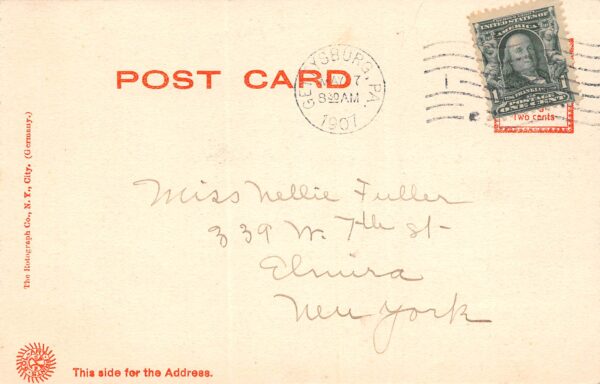 POST CARD
GETTYSBURG, PA
8 30 AM
1907
UNITED STATES OF
AMERICA
FRANKLIN
POSTAGE
ONE CENT
Two cents
The Rotograph Co., N. Y., City. (Germany.)
Miss Nellie Fuller
339 W. 7th st-
Elmira
New York
This side for the Address.